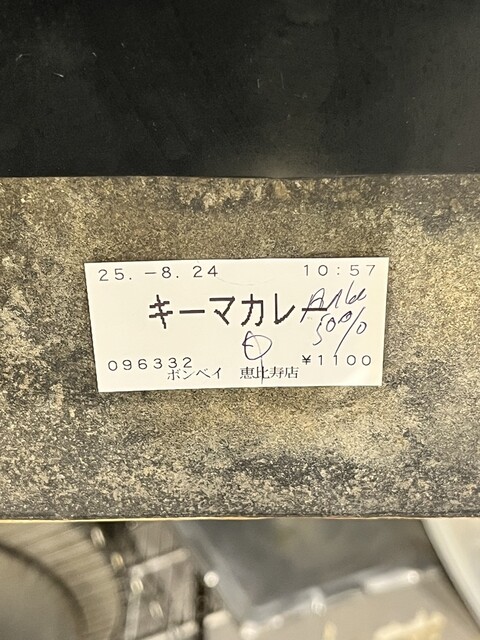 25.-8.24 10:57
キーマカレー
50%
096332 ¥1100
ボンベイ 恵比寿店